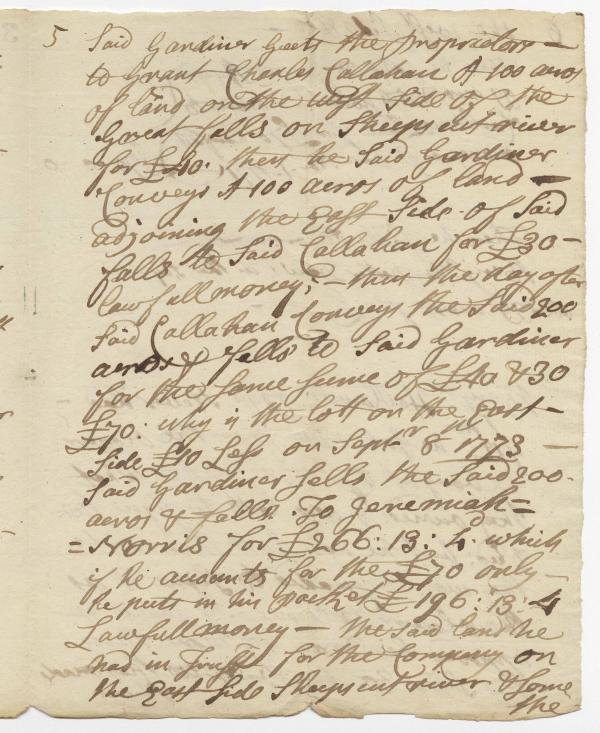 5 Said Gardiner Geets the proprietors —
to Grant Charles Callahan A 100 acros
of land on the west Side of the
Great falls on Sheepscutt river
for £40. then he Said Gardiner
Conveys A 100 acros of land —
adjoining the East Side of Said
falls to Said Callahan for £30 —
lawfull money; — then the day after
Said Callahan Conveys the Said 200
acros & falls to Said Gardiner
for the Same Sume of £40 & 30
£70: why is the lott on the East —
Side £10 Less on Septr 8th 1773 —
Said Gardiner Sells the Said 200
acros & falls. To Jeremiah =
= Norris for £266: 13: 4d which
if he accounts for the £70 only —
he puts in his pocket £196: 13: 4
Lawfull money — the Said land he
had in Trust for the Company on
the East Side Sheepscutt river & Some
the